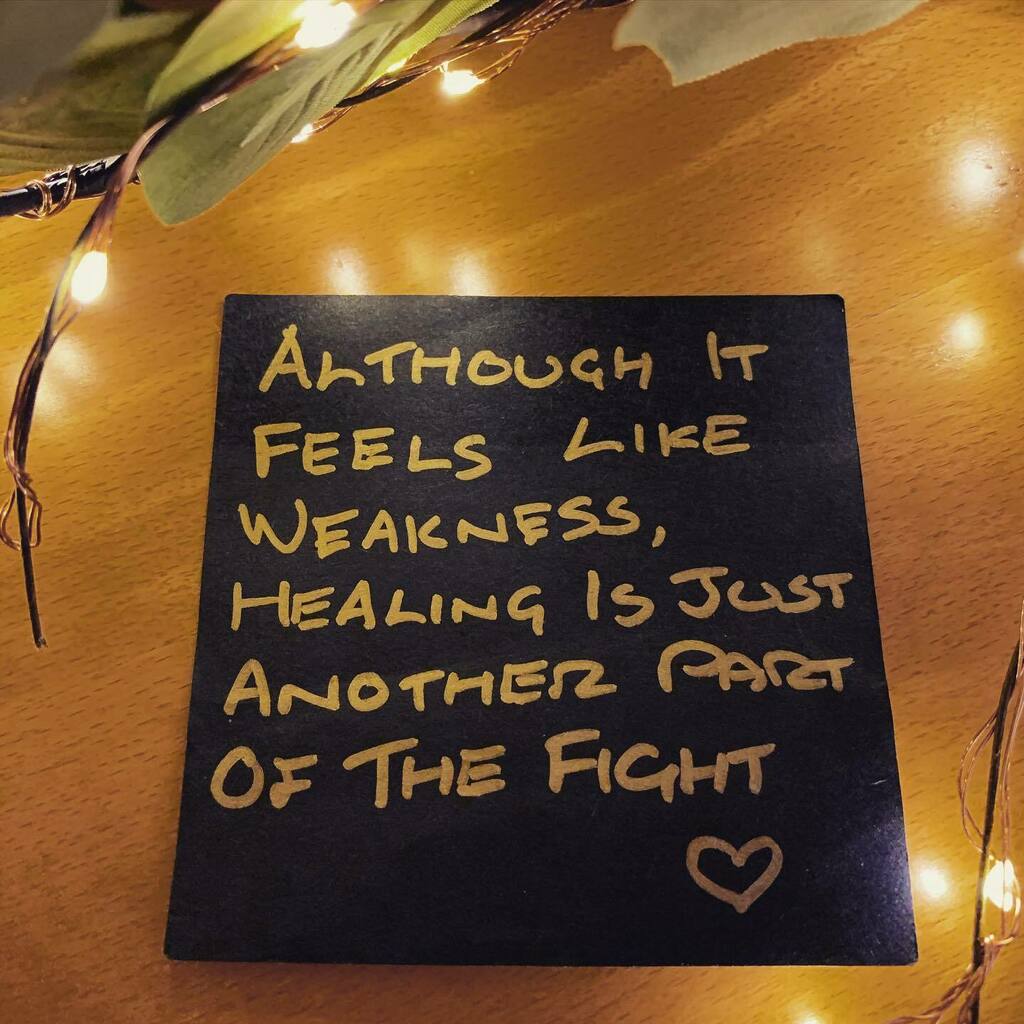 ALTHOUGH IT
FEELS LIKE
WEAKNESS,
HEALING IS JUST
ANOTHER PART
OF THE FIGHT